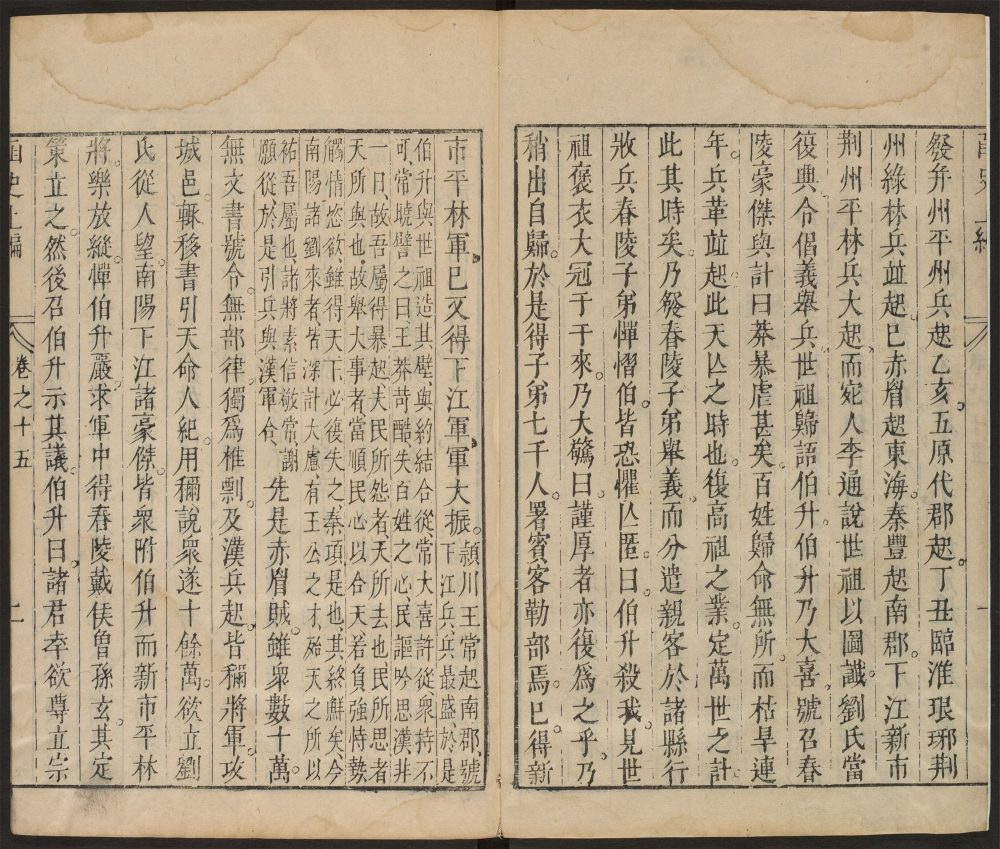 發并州平州兵起乙亥五原代郡起丁丑臨淮琅琊荆
州綠林兵並起巳赤眉起東海秦豐起南郡下江新市
荆州平林兵大起而宛人李通說世祖以圖讖劉氏當
復興令倡義舉兵世祖歸語伯升伯升乃大喜號召舂
陵豪傑與計曰莽暴虐甚矣百姓歸命無所而枯旱連
年兵革並起此天亾之時也復高祖之業定萬世之計
此其時矣乃發舂陵子弟舉義而分遣親客於諸縣行
收兵舂陵子弟憚慴伯皆恐懼亾匿曰伯升殺我見世
祖褒衣大冠于于來乃大驚曰謹厚者亦復爲之乎乃
稍出自歸於是得子弟七千人署賓客勒部焉巳得新
一
市平林軍巳又得下江軍軍大振
潁川王常起南郡號
下江兵兵最盛於是
伯升與世祖造其壁與約結合從常大喜許從衆持不
可常曉譬之曰王莽苛酷失百姓之心民謳吟思漢非
一日故吾屬得暴起夫民所怨者天所去也民所思者
天所與也故舉大事者當順民心以合天若負強恃勢
觸情恣欲雖得天下必復失之秦項是也其終鮮矣今
南陽諸劉來者皆深計大慮有王公之才殆天之所以
祐吾屬也諸將素信敬常謝
願從於是引兵與漢軍合
先是赤眉賊雖衆數十萬
無文書號令無部律獨爲椎剽及漢兵起皆稱將軍攻
城邑輒移書引天命人紀用稱說衆遂十餘萬欲立劉
氏從人望南陽下江諸豪傑皆衆附伯升而新市平林
將樂放縱憚伯升嚴求軍中得舂陵戴侯曾孫玄其定
策立之然後召伯升示其議伯升曰諸君幸欲尊立宗
函史上編
卷之十五
二